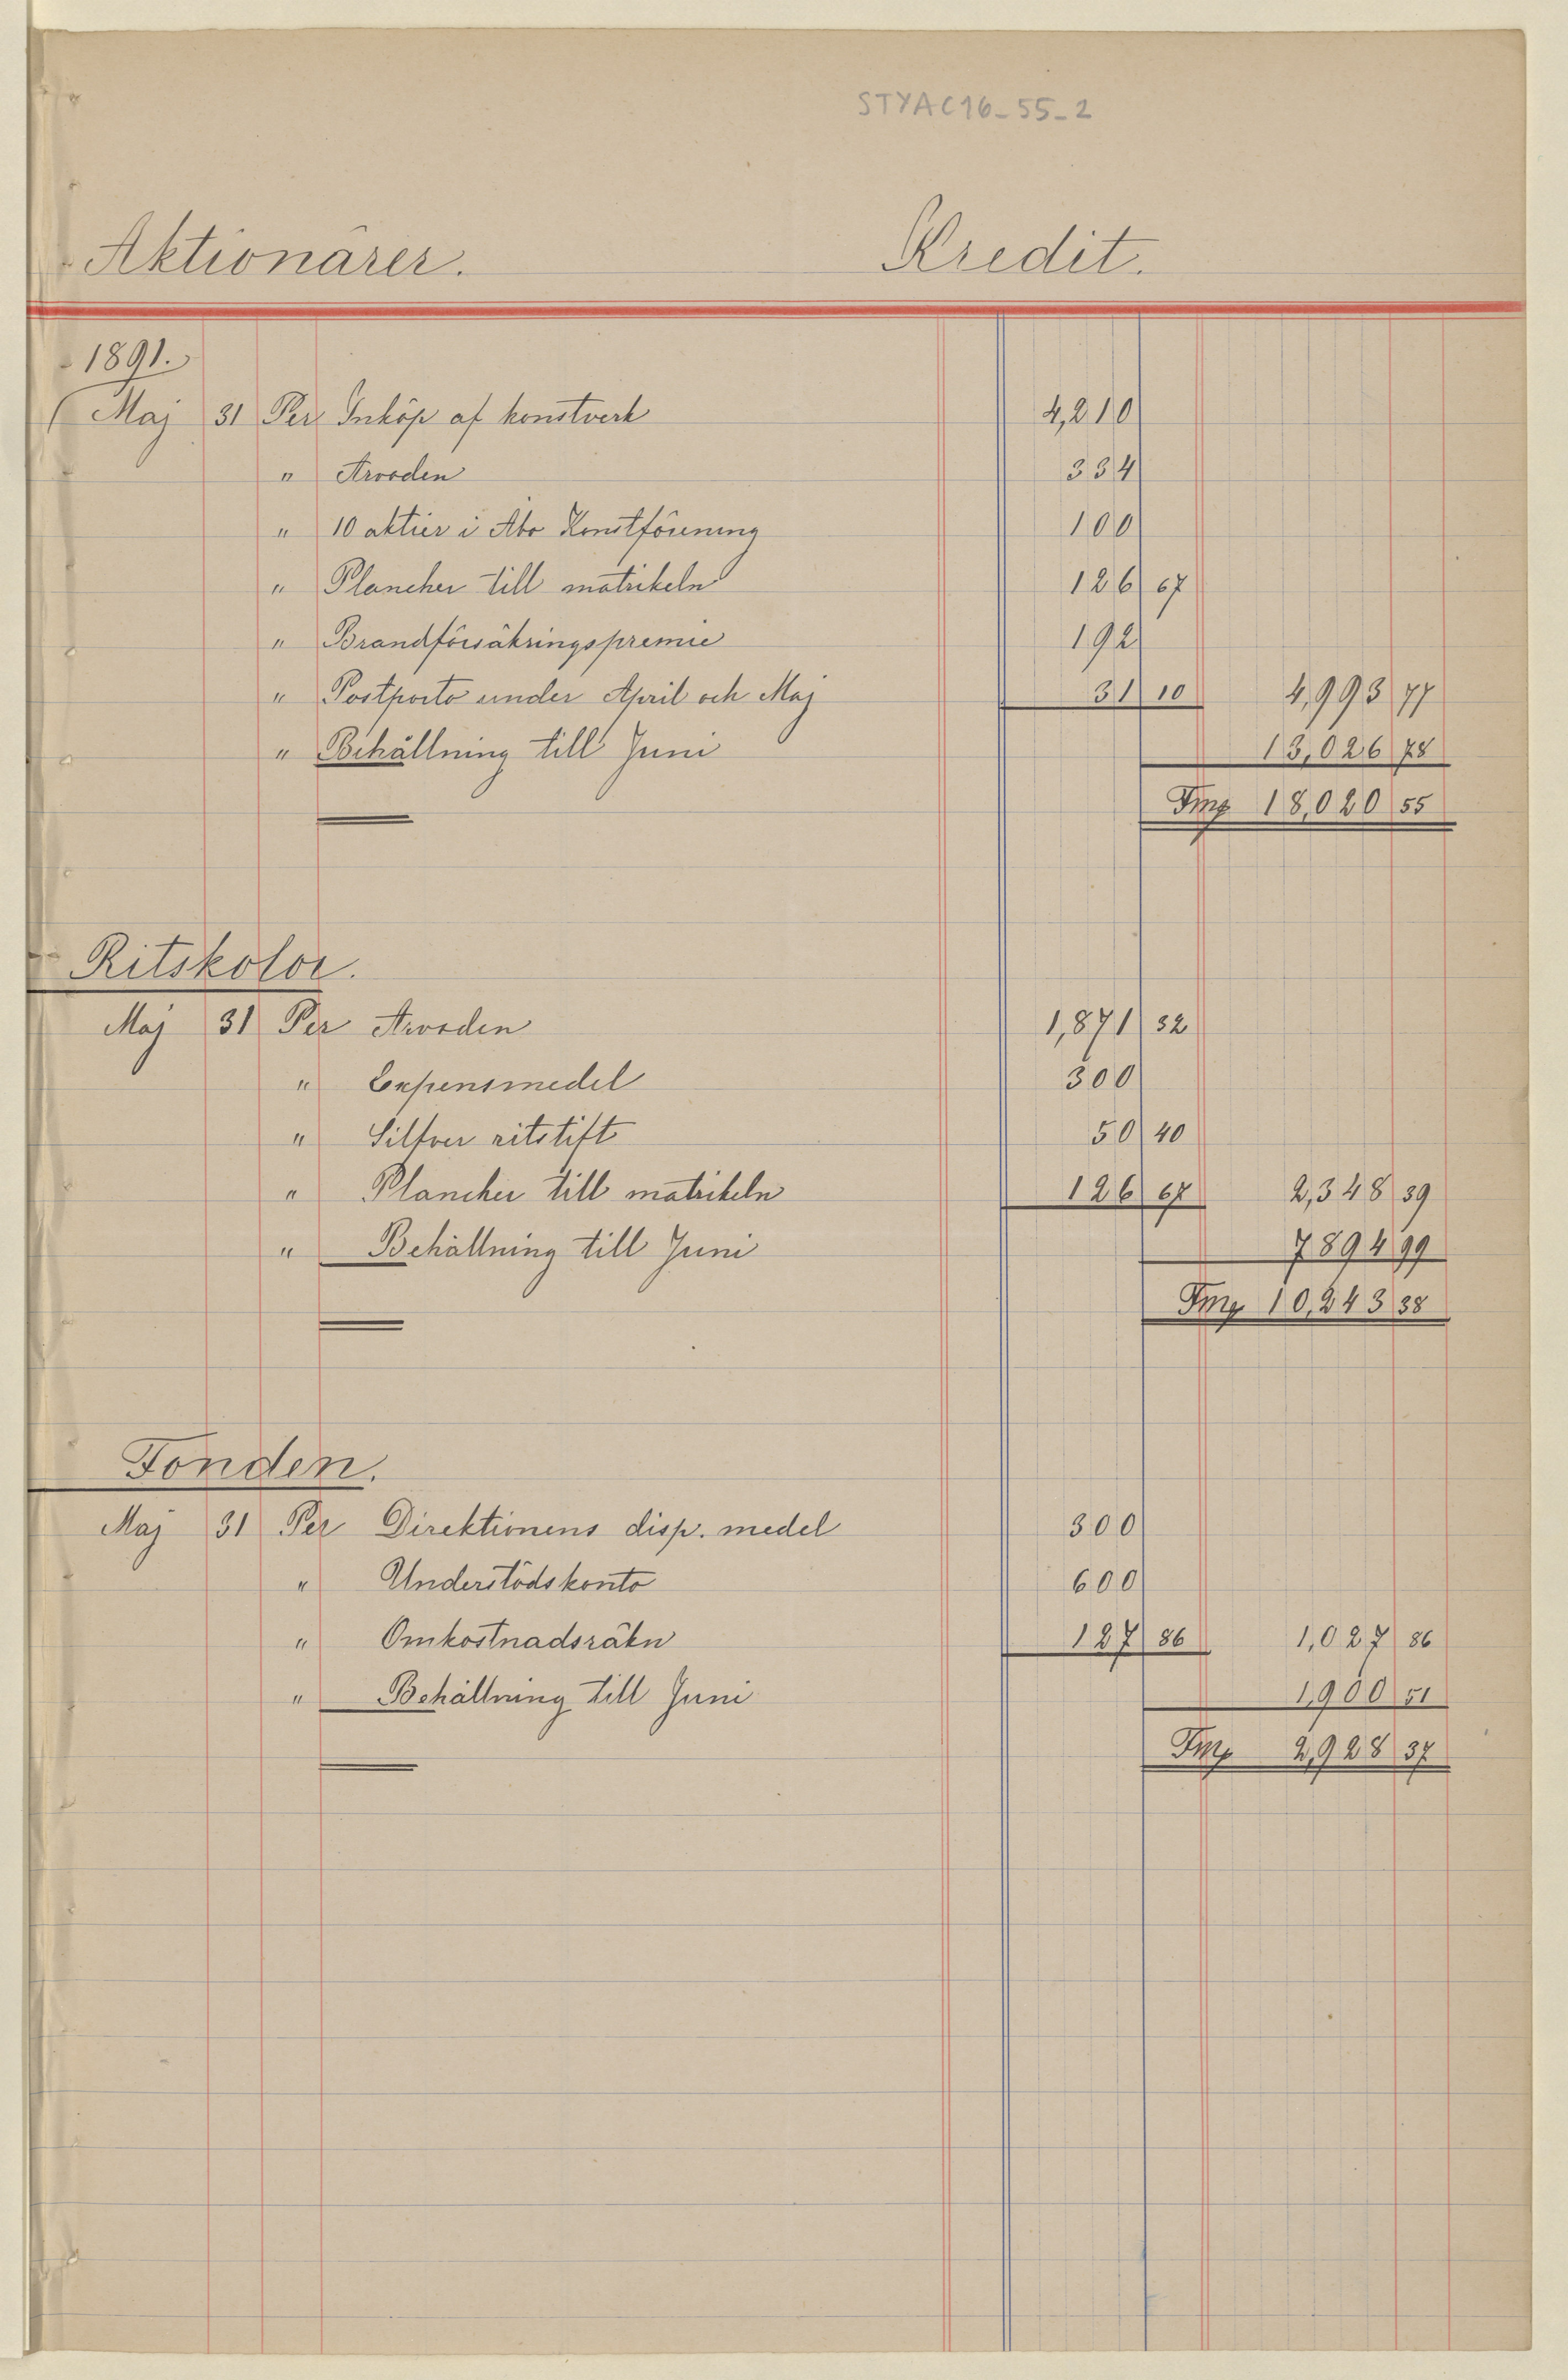 STYAC16_55_2
Aktionärer. Kredit.
1891.
Maj 31 Per Inköp af konstverk 4,210
" Arvoden 334
" 10 aktier i Åbo Konstförening 100
" Plancher till matrikeln 126 67
" Brandförsäkringspremie 192
" Postporto under April och Maj 31 10 4,993 77
" Behållning till Juni 13,026 78
Fmg 18,020 55
Ritskolor.
Maj 31 Per Arvoden 1,871 32
" Expensmedel 300
" Silfver ritstift 50 40
" Plancher till matrikeln 126 67 2,348 39
" Behållning till Juni 7894 99
Fmg 10,243 38
Fonden.
Maj 31 Per Direktionens disp. medel 300
" Understödskonto 600
" Omkostnadsräkn 127 86 1,027 86
" Behållning till Juni 1,900 51
Fmg 2,928 37